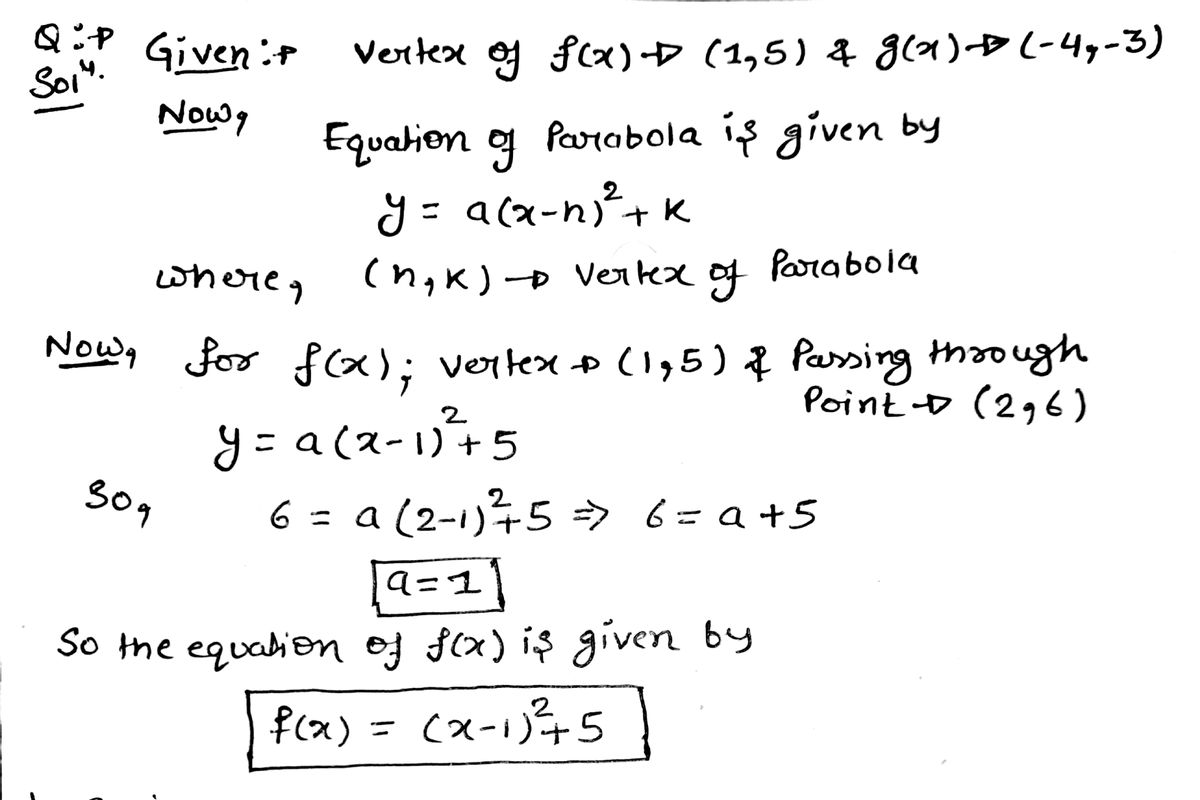 Q:→ Given:→ Vertex of f(x) → (1,5) & g(x) → (-4,-3)
Solⁿ.
Now,
Equation of Parabola is given by
y = a(x-h)² + k
where, (h,k) → Vertex of Parabola
Now, for f(x); vertex → (1,5) & Passing through
Point → (2,6)
y = a(x-1)² + 5
So, 6 = a(2-1)² + 5 ⇒ 6 = a + 5
a = 1
So the equation of f(x) is given by
f(x) = (x-1)² + 5